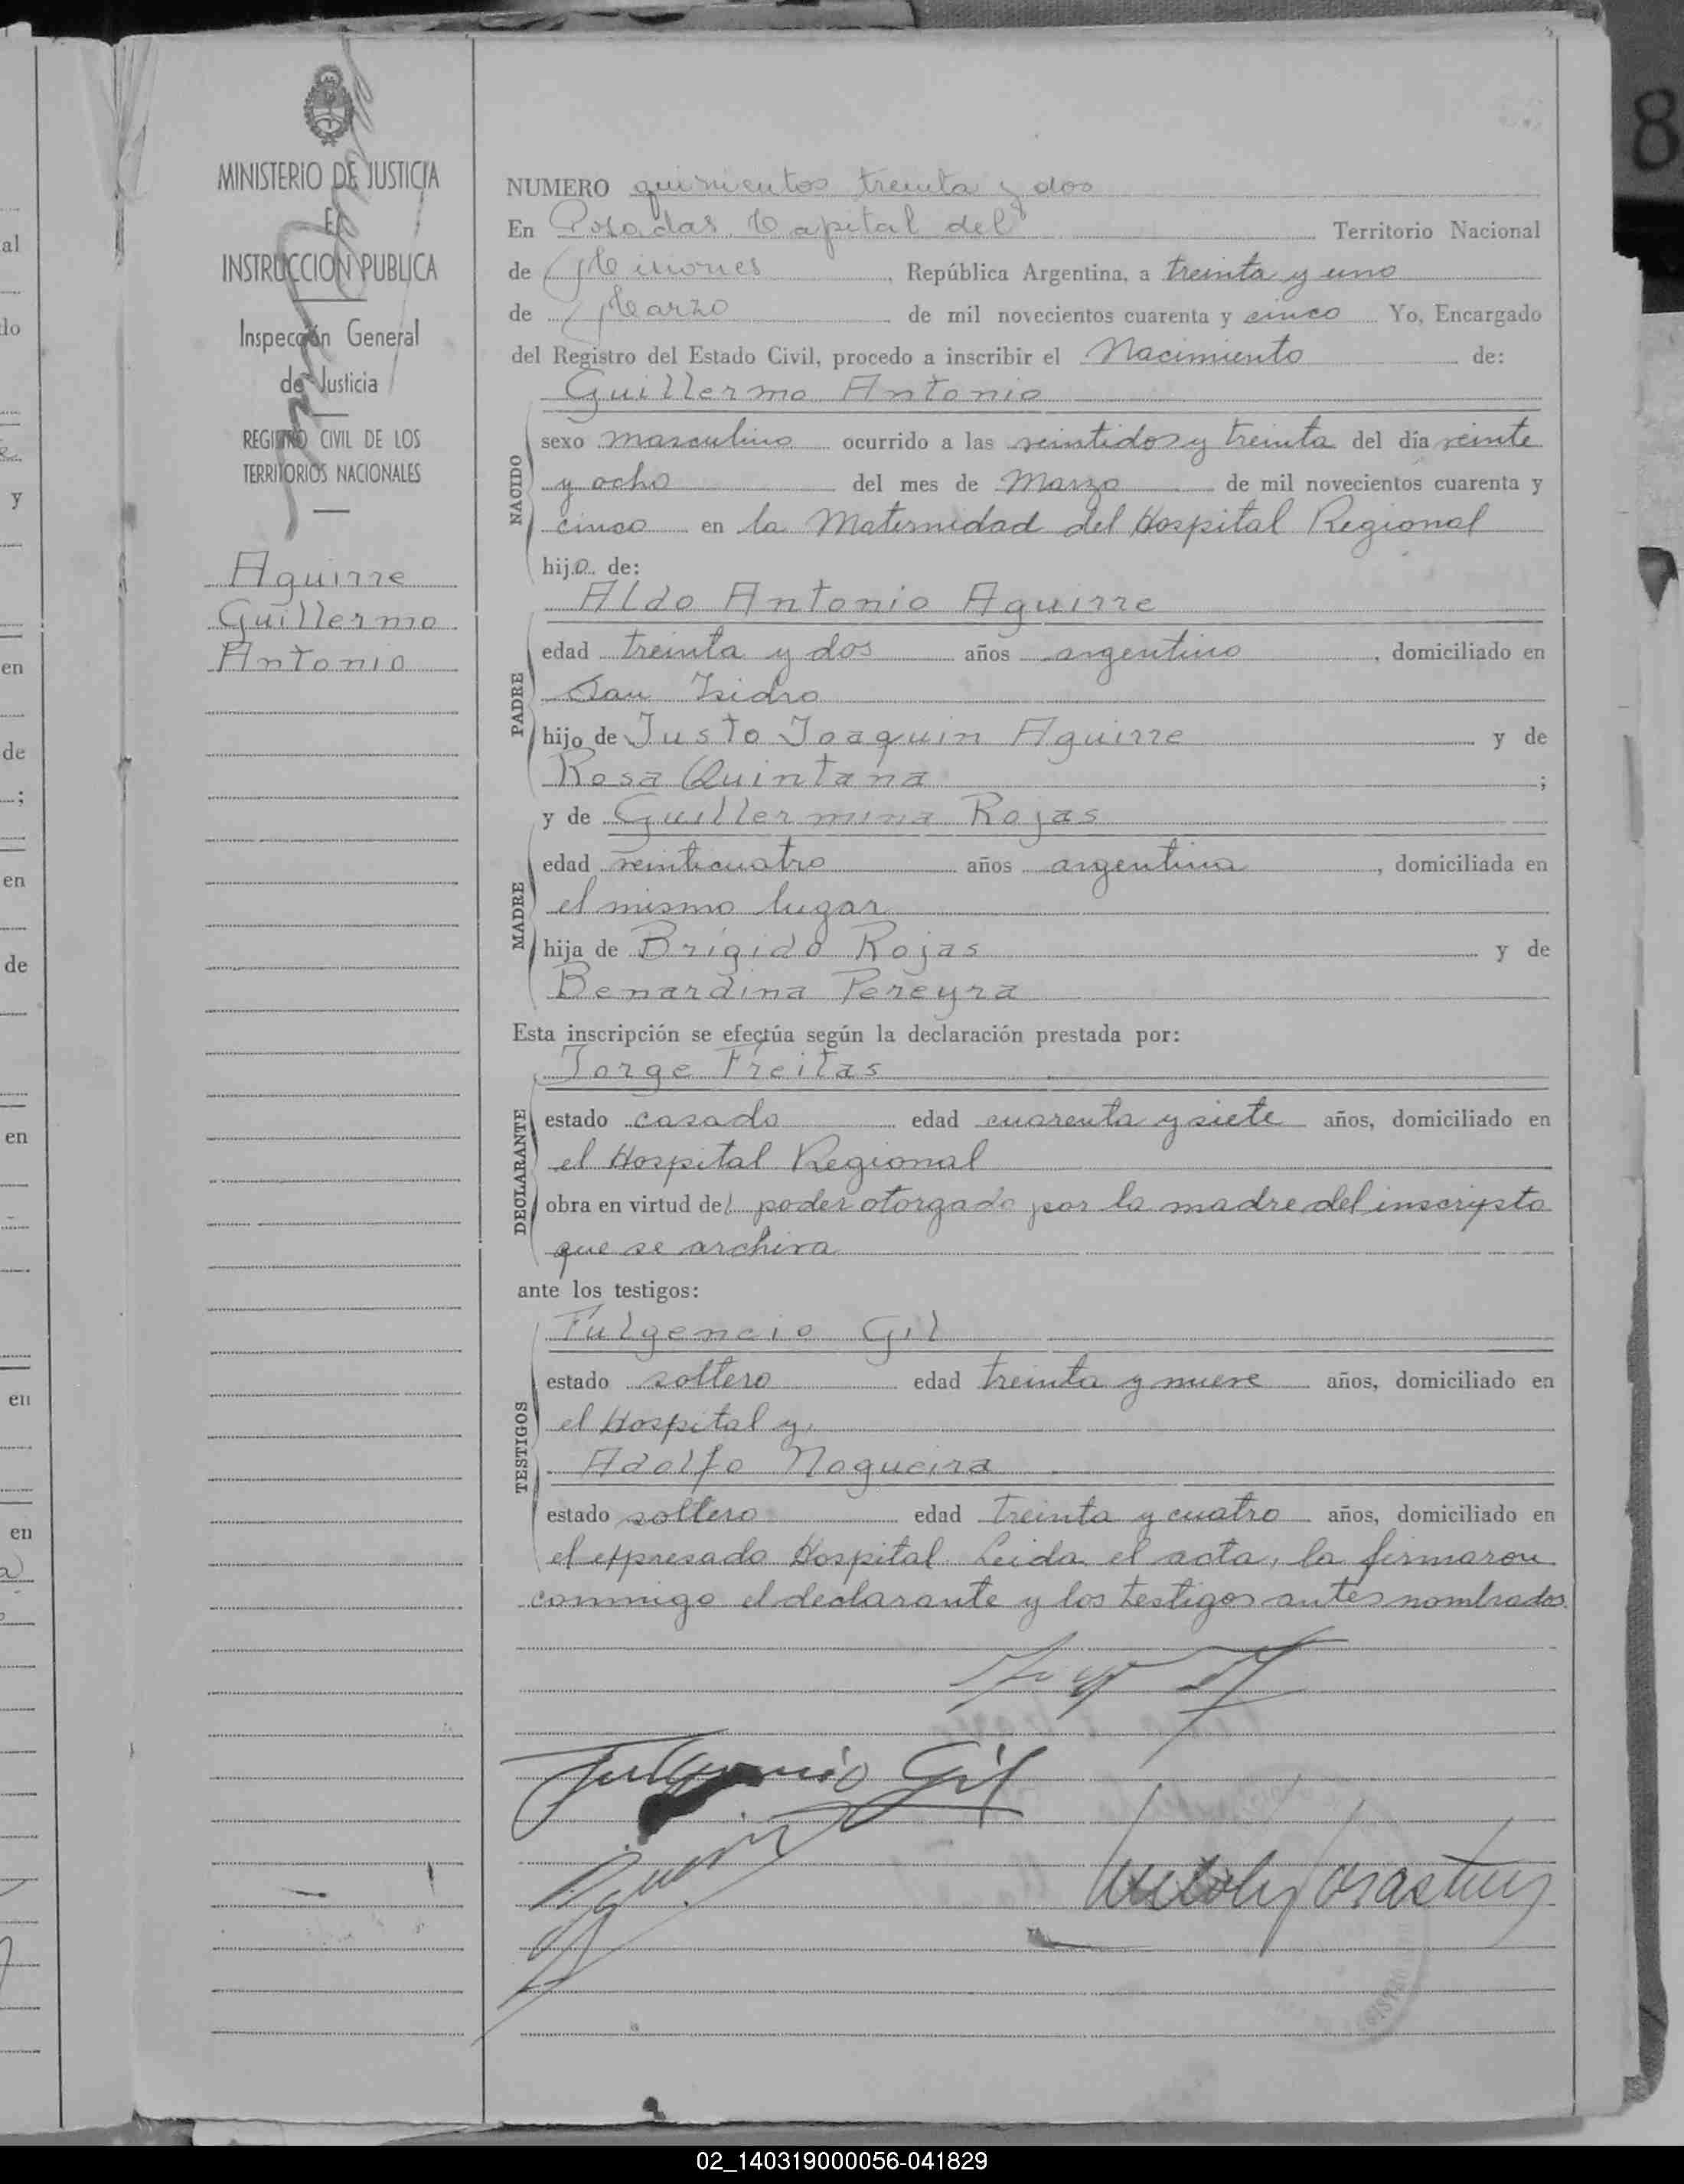 MINISTERIO DE JUSTICIA
E
INSTRUCCION PUBLICA
Inspección General
de Justicia
REGISTRO CIVIL DE LOS
TERRITORIOS NACIONALES
Aguirre
Guillermo
Antonio
NUMERO quinientos treinta y dos
En Posadas Capital del Territorio Nacional
de Misiones, República Argentina, a treinta y uno
de Marzo de mil novecientos cuarenta y cinco Yo, Encargado
del Registro del Estado Civil, procedo a inscribir el Nacimiento de:
NACIDO
Guillermo Antonio
sexo masculino ocurrido a las veintidos y treinta del día veinte
y ocho del mes de Marzo de mil novecientos cuarenta y
cinco en la Maternidad del Hospital Regional
hijo de:
PADRE
Aldo Antonio Aguirre
edad treinta y dos años argentino, domiciliado en
San Isidro
hijo de Justo Joaquin Aguirre y de
Rosa Quintana ;
y de Guillermina Rojas
MADRE
edad veinticuatro años argentina, domiciliada en
el mismo lugar
hija de Brígido Rojas y de
Benardina Pereyra
Esta inscripción se efectúa según la declaración prestada por:
DECLARANTE
Jorge Freitas
estado casado edad cuarenta y siete años, domiciliado en
el Hospital Regional
obra en virtud del poder otorgado por la madre del inscripto
que se archiva
ante los testigos:
TESTIGOS
Fulgencio Gil
estado soltero edad treinta y nueve años, domiciliado en
el Hospital y
Adolfo Nogueira
estado soltero edad treinta y cuatro años, domiciliado en
el expresado Hospital Leida el acta, la firmaron
conmigo el declarante y los testigos antes nombrados
Fulgencio Gil
8
al
do
y
en
de
;
en
de
en
en
en
02_140319000056-041829